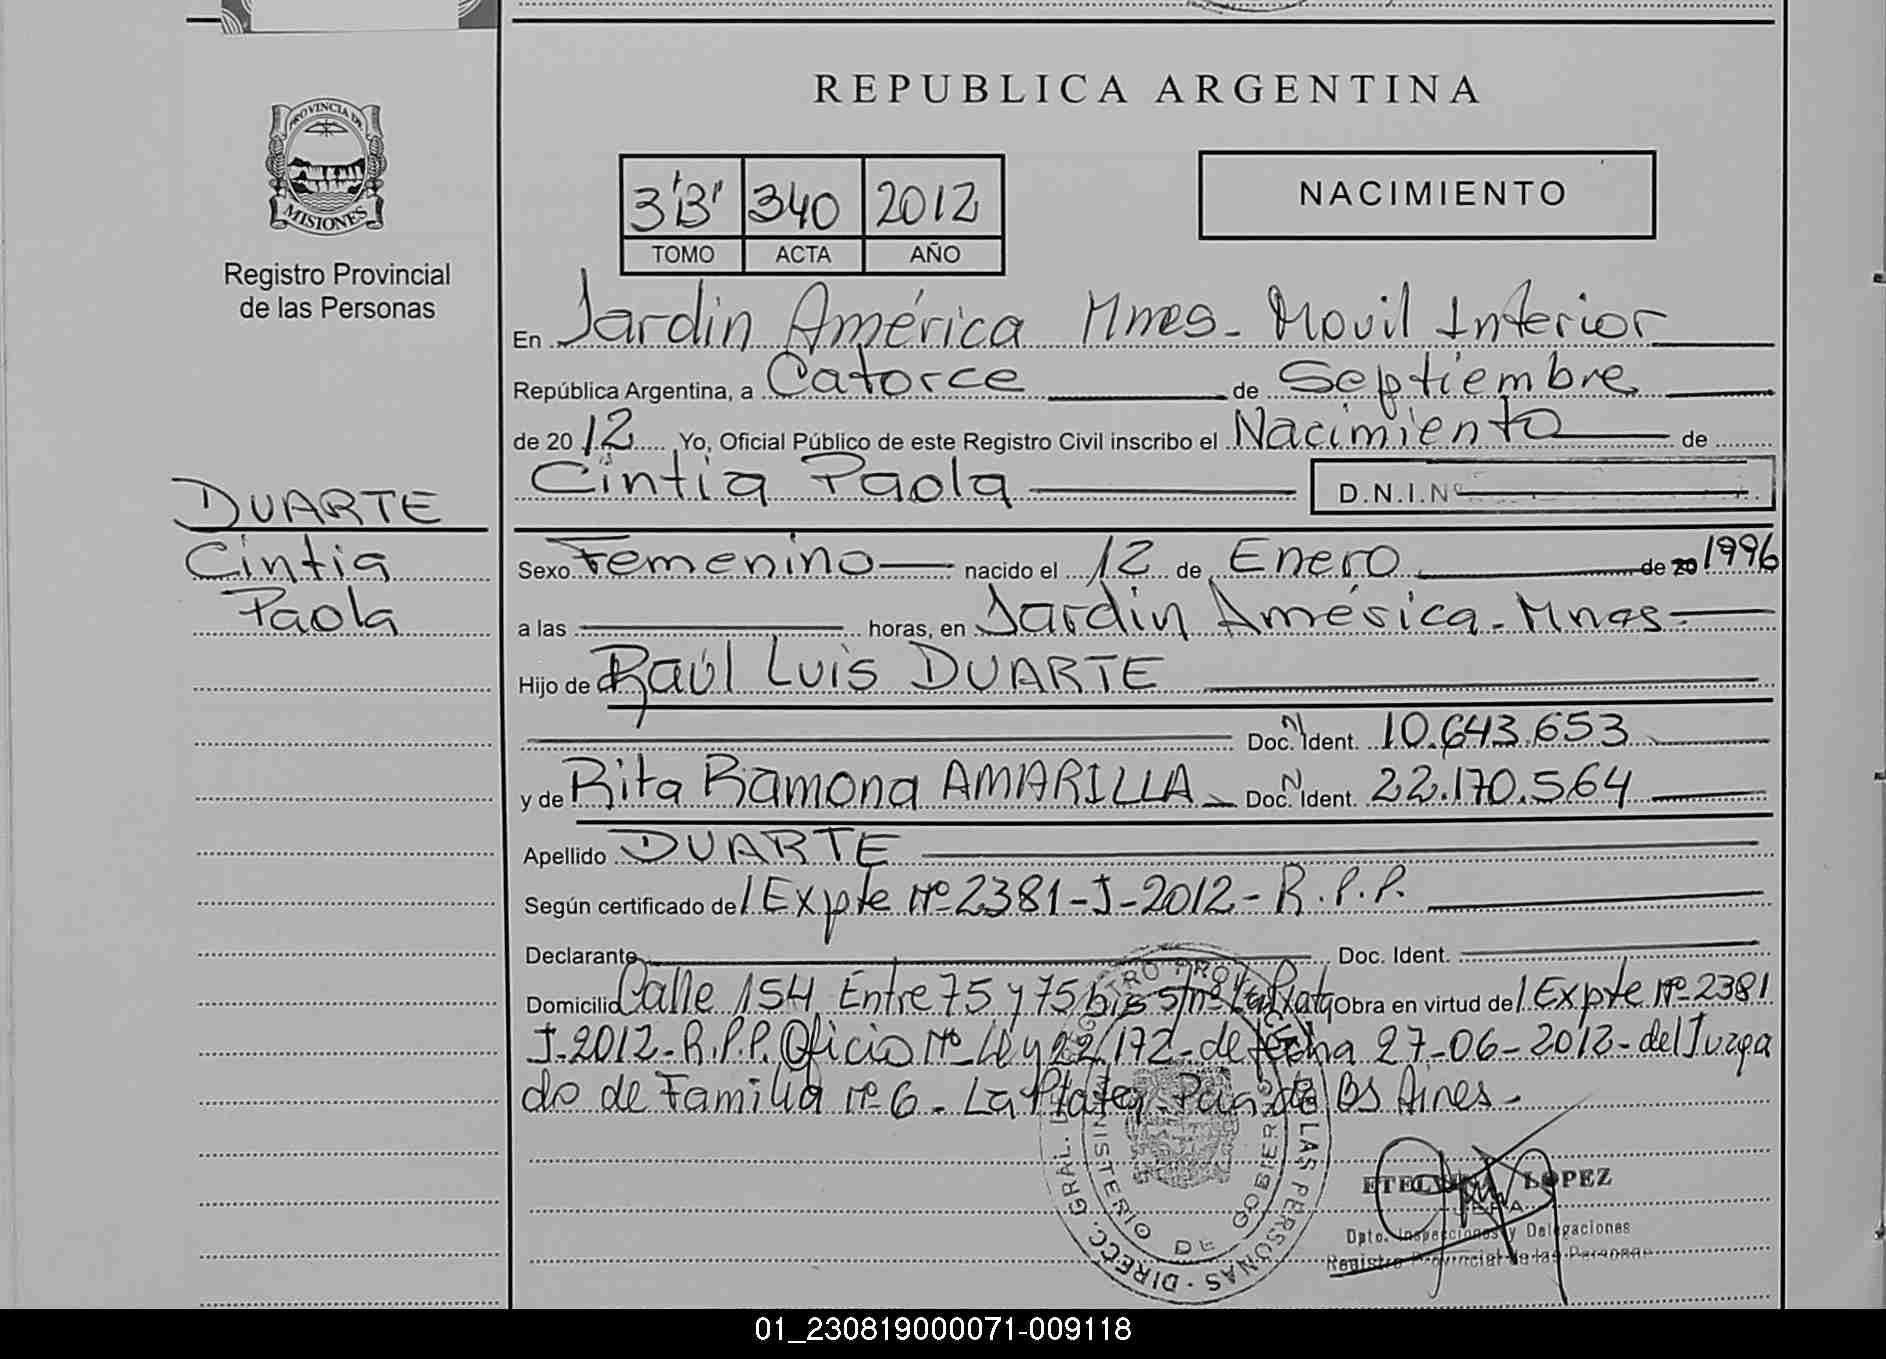 REPUBLICA ARGENTINA
PROVINCIA DE
MISIONES
Registro Provincial
de las Personas
3 "B" 340 2012
TOMO ACTA AÑO
NACIMIENTO
En Jardin América Mnes. Movil Interior
República Argentina, a Catorce de Septiembre
de 20 12 Yo, Oficial Público de este Registro Civil inscribo el Nacimiento de
Cintia Paola D.N.I.Nº
DUARTE
Cintia
Paola
Sexo Femenino nacido el 12 de Enero de 20 1996
a las horas, en Jardin América - Mnes
Hijo de Raúl Luis DUARTE
Doc. N Ident. 10.643.653
y de Rita Ramona AMARILLA Doc. N Ident. 22.170.564
Apellido DUARTE
Según certificado de / Expte Nº 2381-J-2012- R.P.P.
Declarante Doc. Ident.
Domicilio Calle 154 Entre 75 y 75 bis s/nº La Plata Obra en virtud de / Expte Nº 2381
J-2012- R.P.P. Oficio Nº Ley 22/172- de fecha 27-06-2012- del Juzga
do de Familia nº 6 - La Plata - de Bs Aires -
DIRECC. GRAL. DE LAS PERSONAS
MINISTERIO DE GOBIERNO
LOPEZ
JEFA
Dpto. Inspecciones y Delegaciones
Registro Provincial de las Personas
01_230819000071-009118